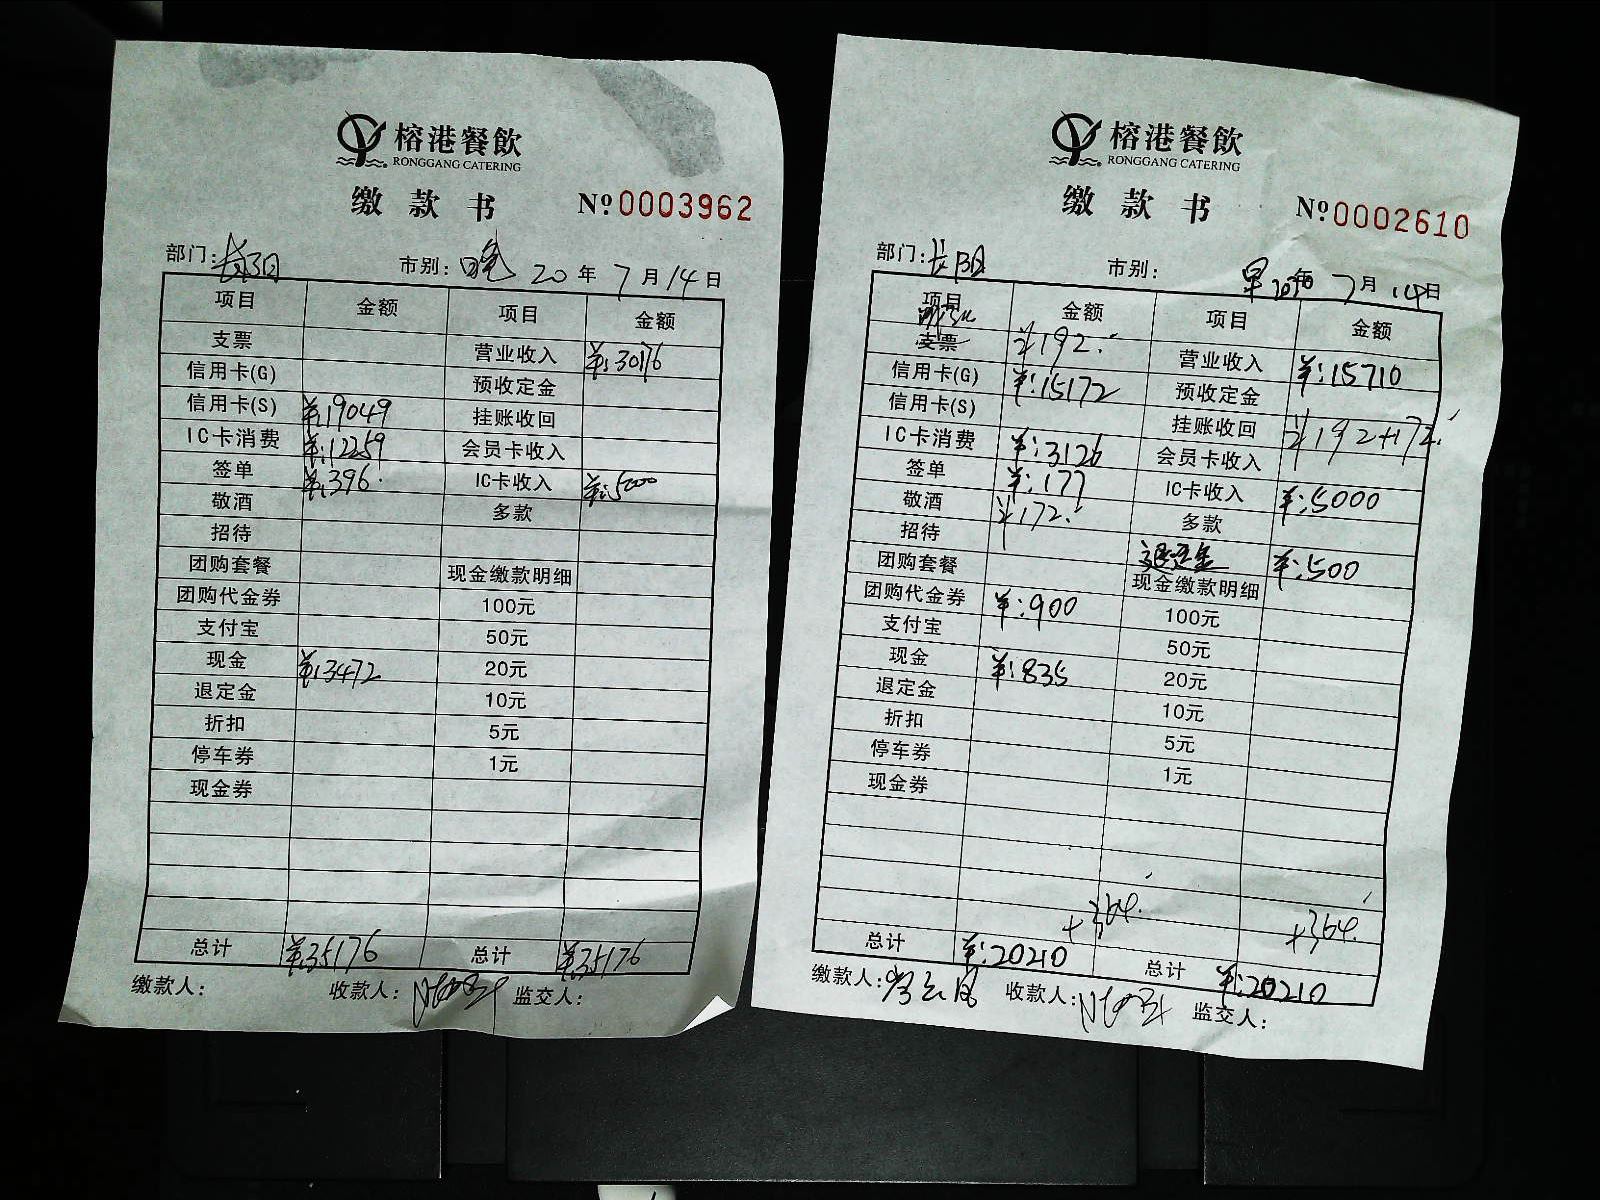 榕港餐飲
RONGGANG CATERING
缴款书 №0003962
部门：长阳 市别：晚 20 年 7 月 14 日
项目 金额 项目 金额
支票 营业收入 ¥:30176
信用卡(G) 预收定金
信用卡(S) ¥:19049 挂账收回
IC卡消费 ¥:12259 会员卡收入
签单 ¥:396. IC卡收入 ¥:5000
敬酒 多款
招待
团购套餐 现金缴款明细
团购代金券 100元
支付宝 50元
现金 ¥:3472 20元
退定金 10元
折扣 5元
停车券 1元
现金券
总计 ¥:35176 总计 ¥:35176
缴款人： 收款人： 监交人：
榕港餐飲
RONGGANG CATERING
缴款书 №0002610
部门：长阳 市别： 早 年 7 月 14 日
项目 金额 项目 金额
支票 ¥192. 营业收入 ¥:15710
信用卡(G) ¥:15172 预收定金
信用卡(S) 挂账收回 ¥192+172.
IC卡消费 ¥:3126 会员卡收入
签单 ¥:177 IC卡收入 ¥:5000
敬酒 ¥172. 多款
招待 退定金 ¥:500
团购套餐 现金缴款明细
团购代金券 ¥:900 100元
支付宝 50元
现金 ¥:835 20元
退定金 10元
折扣 5元
停车券 1元
现金券
+364. +364.
总计 ¥:20210 总计 ¥:20210
缴款人： 收款人： 监交人：